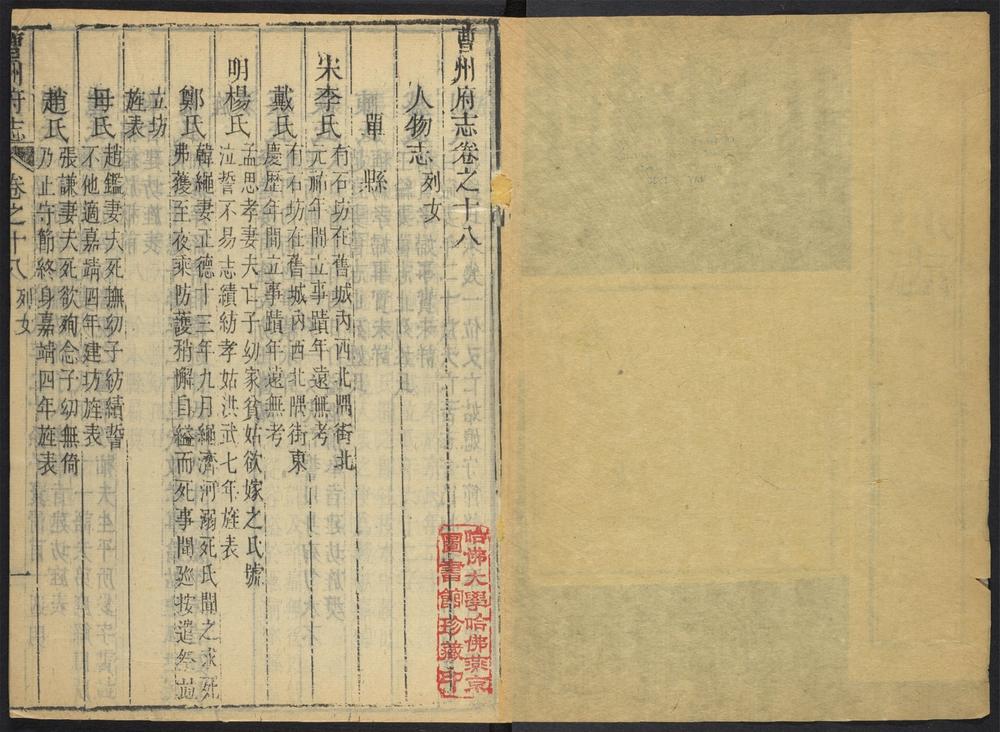 曹州府志卷之十八
人物志列女
單縣
宋李氏
有石坊在舊城內西北隅街北
元祐年間立事蹟年遠無考
戴氏
有石坊在舊城內西北隅街東
慶歷年間立事蹟年遠無考
明楊氏
孟思孝妻夫亡子幼家貧姑欲嫁之氏號
泣誓不易志績紡孝姑洪武七年旌表
鄭氏
韓繩妻正德十三年九月繩濟河溺死氏聞之求死
弗獲至夜乘防護稍懈自縊而死事聞廵按遣祭並
立坊
旌表
毋氏
趙鑑妻夫死撫幼子紡績誓
不他適嘉靖四年建坊旌表
趙氏
張謙妻夫死欲殉念子幼無倚
乃止守節終身嘉靖四年旌表
曹州府志
卷之十八
列女
一
哈佛大學哈佛燕京
圖書館珍藏印